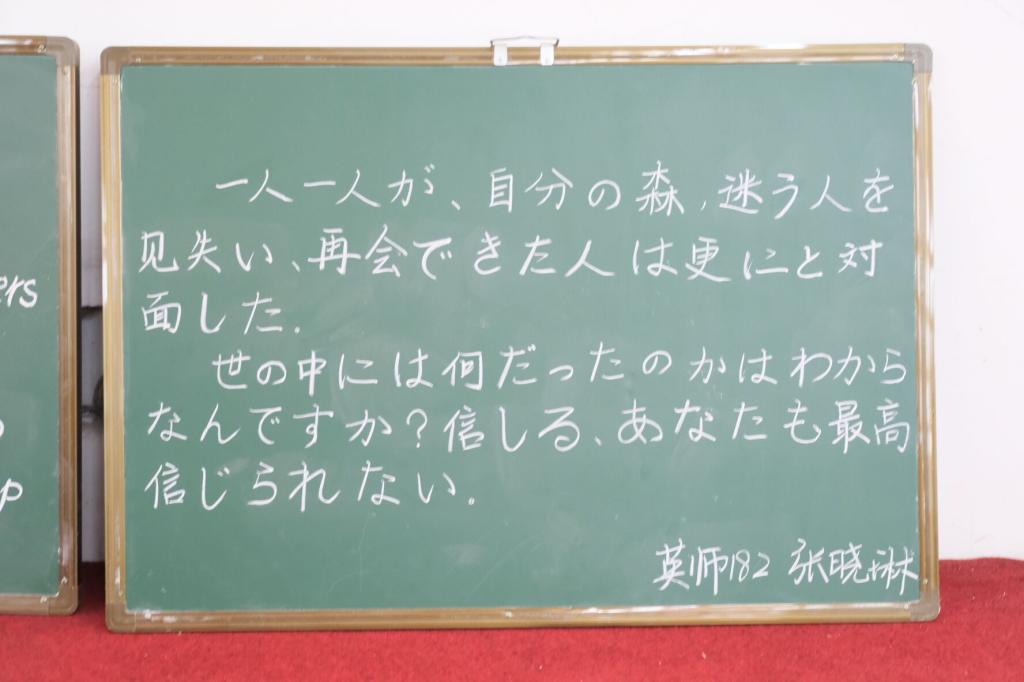 一人一人が、自分の森,迷う人を
见失い、再会できた人は更にと対
面した.
世の中には何だったのかはわから
なんですか?信しる、あなたも最高
信じられない。
英师182 张晓琳
ers
p